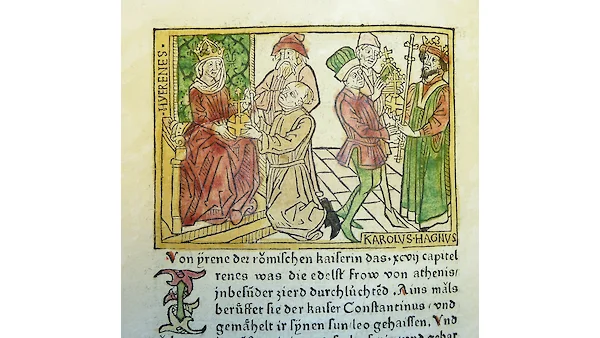 HYERENES·
KAROLVS·MAGNVS
Von ÿrene der römischen kaiserin das .xcvij capitel
Yrenes was die edelst frow von athenis/
jnbesūder zierd durchlüchtēd. Ains māls
berüffet sie der kaiser Constantinus/ vnd
gemähelt ir sÿnen sun/leo gehaissen. Vnd